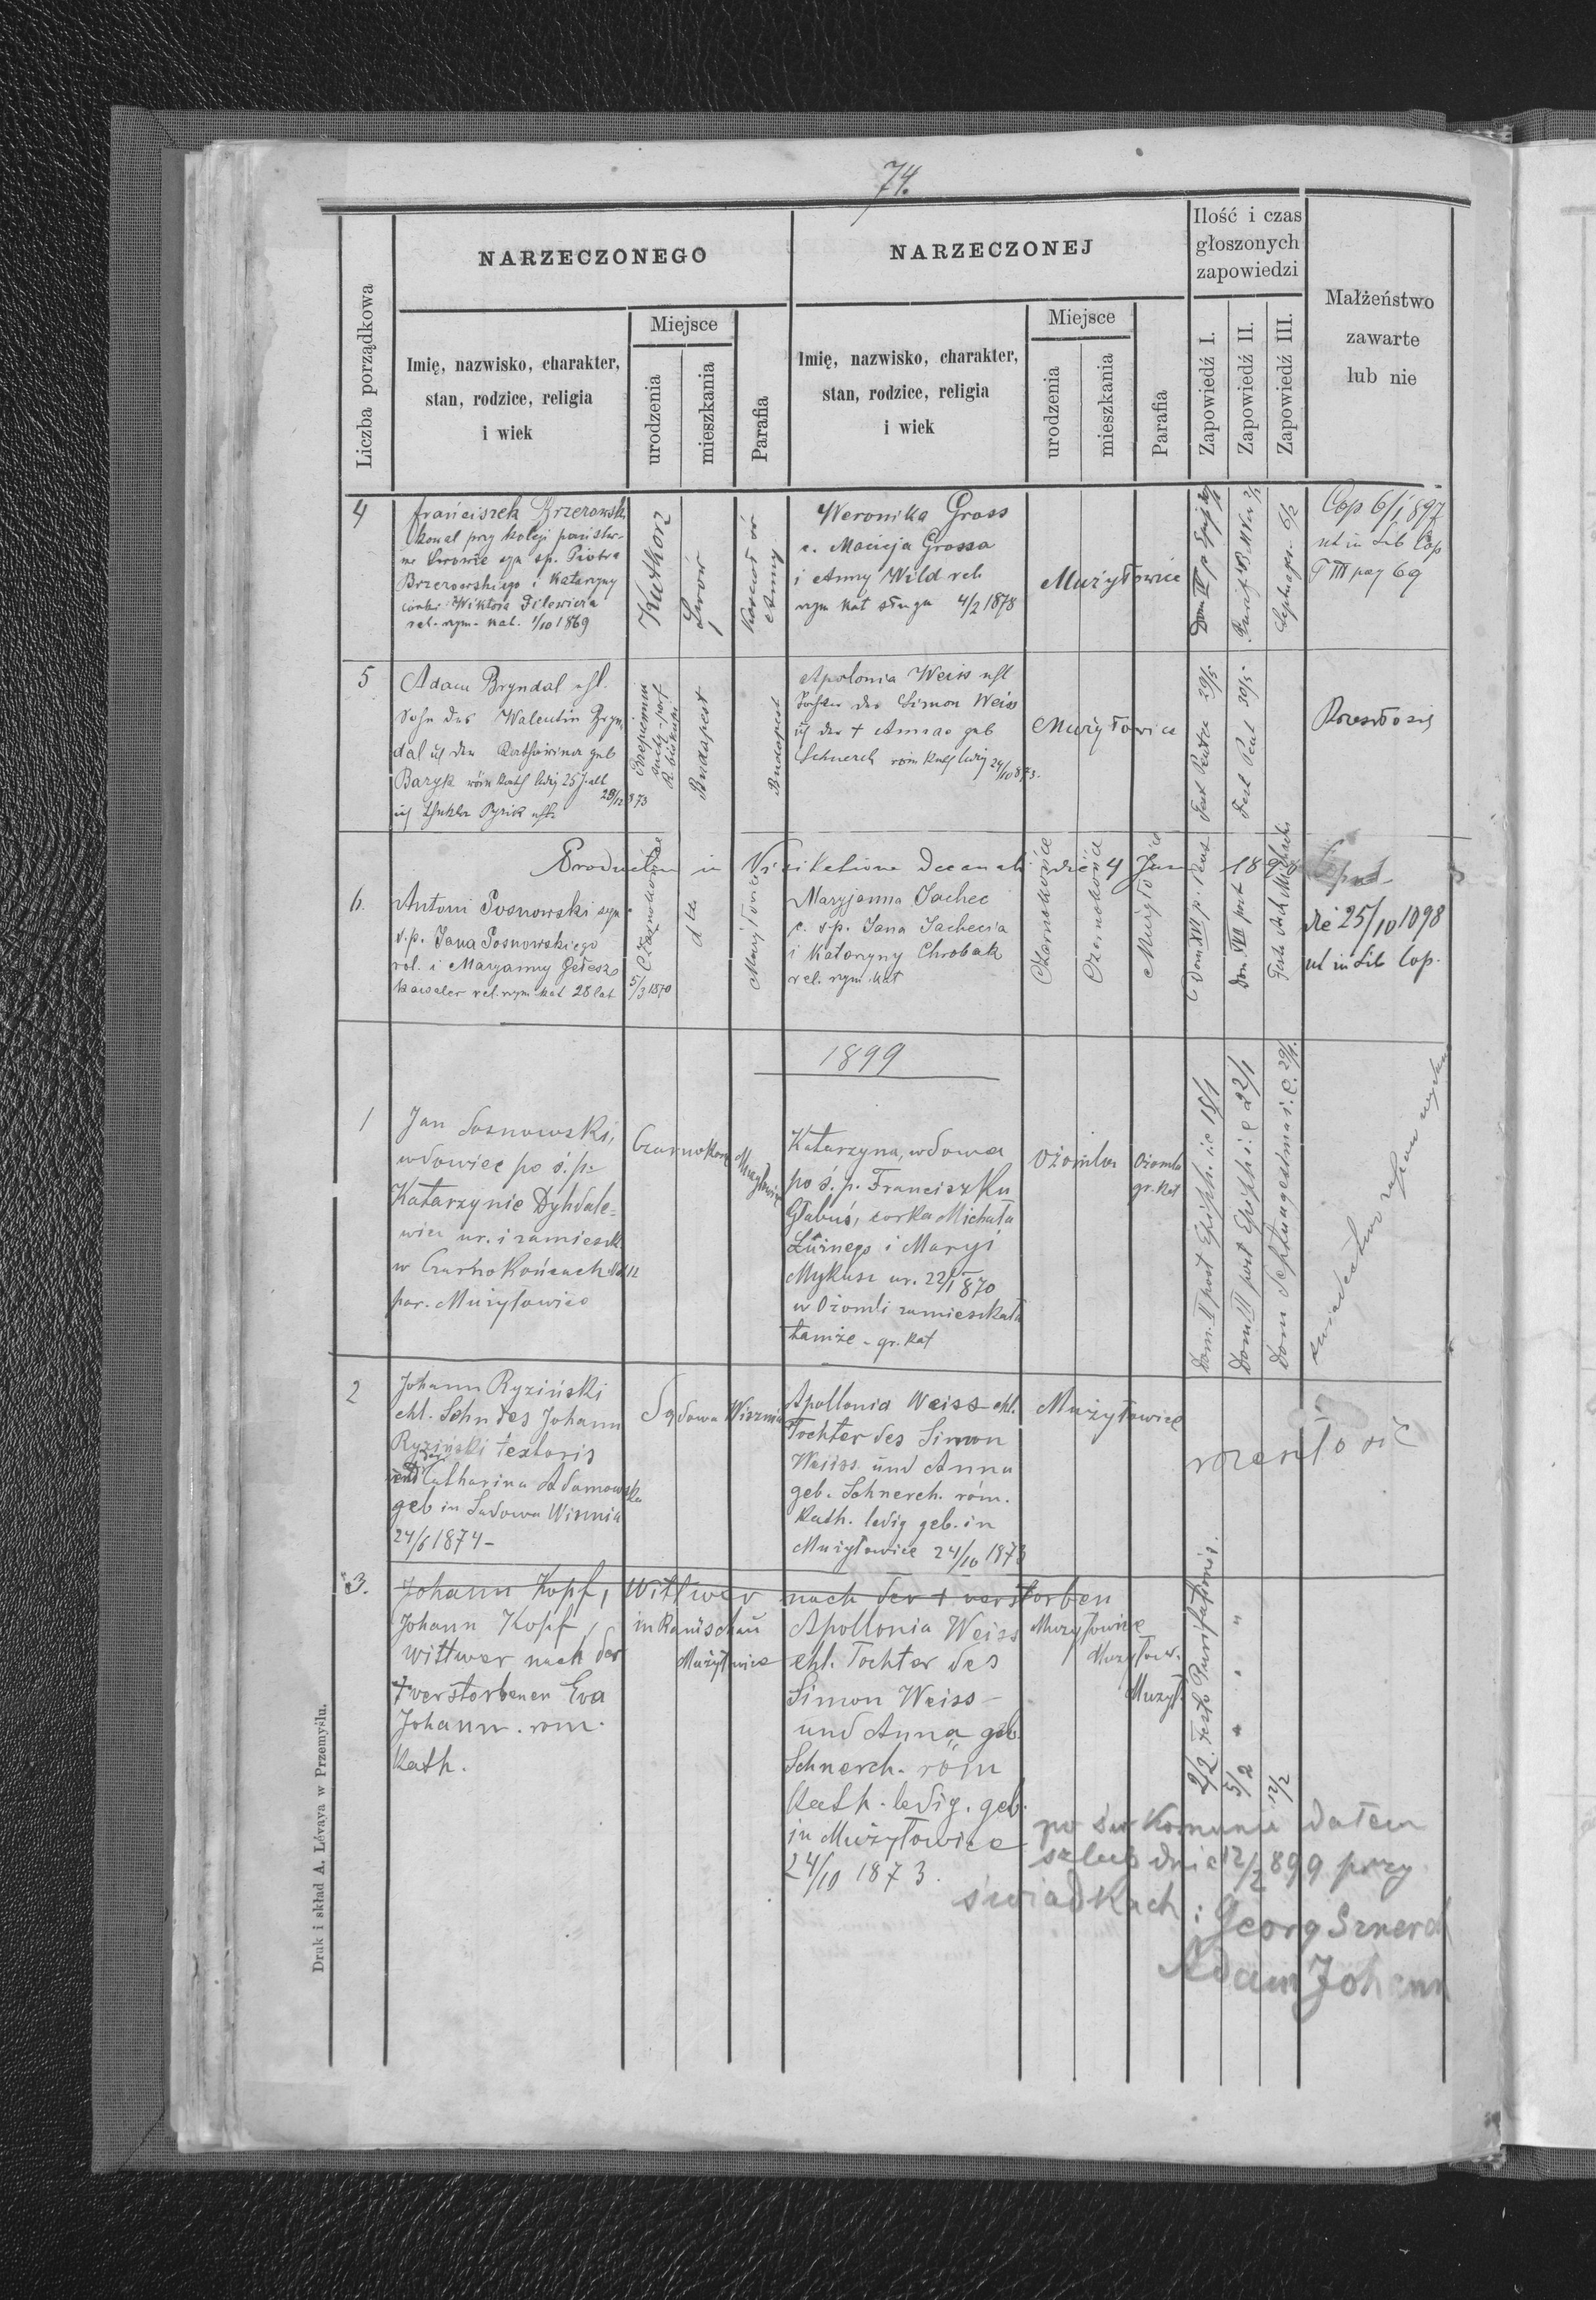 74.
Liczba porządkowa
NARZECZONEGO
Imię, nazwisko, charakter,
stan, rodzice, religia
i wiek
Miejsce
urodzenia
mieszkania
Parafia
NARZECZONEJ
Imię, nazwisko, charakter,
stan, rodzice, religia
i wiek
Miejsce
urodzenia
mieszkania
Parafia
Ilość i czas
głoszonych
zapowiedzi
Zapowiedź I.
Zapowiedź II.
Zapowiedź III.
Małżeństwo
zawarte
lub nie
4
Franciszek Brzezowski
kowal przy kolei państw-
we Lwowie syn śp. Piotra
Brzezowskiego i Katarzyny
córki Wiktora Filewicza
rel. rzym. kat. 1/10 1869
Kutkorz
Lwów
Kościół św
Anny
Weronika Gross
c. Macieja Grossa
i Anny Wild rel
rzym kat sługa 4/2 1878
Mużyłowice
Septuages. 6/2
Cop 6/1 897
ut in Lib Cop
T III pag 69
5
Adam Bryndal ehl.
Sohn des Walentin Bryn
dal u der Katharina geb
Baryk röm kath ledig 25 J. alt
29/12 873
Budapest
Budapest
Apolonia Weiss ehl
Tochter des Simon Weiss
u der + Annae geb
Schnerch röm kath ledig 24/10 873.
Mużyłowice
Rozeszło się
Productum in Visitatione Decanali die 4 Juni 1898
6.
Antoni Sosnowski syn
ś.p. Jana Sosnowskiego
rol. i Maryanny Gełesz
kawaler rel. rzym. kat 28 lat
Czarnokońce
5/3 1870
dto
Mużyłowice
Maryjanna Sachec
c. ś.p. Jana Sachecia
i Katarzyny Chrobak
rel. rzym. kat
Czarnokońce
Czarnokońce
Mużyłowice
Dom XVI p. Pent
Dom. XVII post
Festo Arch. Michaelis
Copul.
die 25/10 1898
ut in Lib Cop.
1899
1
Jan Sosnowski,
wdowiec po ś.p.
Katarzynie Dyhdale-
wicz ur. i zamieszk.
w Czarnokońcach Nd 12
par. Mużyłowice
Czarnokońce
Mużyłowice
Katarzyna, wdowa
po ś.p. Franciszku
Głabuś, córka Michała
Luźnego i Maryi
Mykusz ur. 22/1 870
w Ożomli zamieszkała
tamże - gr. kat
Ożomla
Ożomla
gr. kat
Dom. II post Epiph. i e 15/1
Dom III post Epiph i. e 22/1
Dom Septuagesima i. e. 29/1.
2
Johann Ryziński
ehl. Sohn des Johann
Ryziński textoris
und der Catharina Adamowska
geb in Sadowa Wisznia
24/6 1874 -
Sądowa Wisznia
Apollonia Weiss ehl.
Tochter des Simon
Weiss und Anna
geb. Schnerch. röm.
Kath. ledig geb. in
Mużyłowice 24/10 1873
Mużyłowice
3.
Johann Kopf, Wittwer nach der + verstorben
Johann Kopf,
Wittwer nach der
+ verstorbenen Eva
Johann. röm.
Kath.
in Ranischau
Mużyłowice
Apollonia Weiss
ehl. Tochter des
Simon Weiss -
und Anna geb.
Schnerch. röm
Kath. ledig. geb.
in Mużyłowice
24/10 1873.
Mużyłowice
Mużyłow.
Mużył.
2/2. Festo Purificationis.
5/2 " " "
12/2
po św Komunii dałem
szlub dnia 12/2 899 przy
świadkach:
Georg Sznerch
Adam Johann
Druk i skład A. Lévaya w Przemyślu.